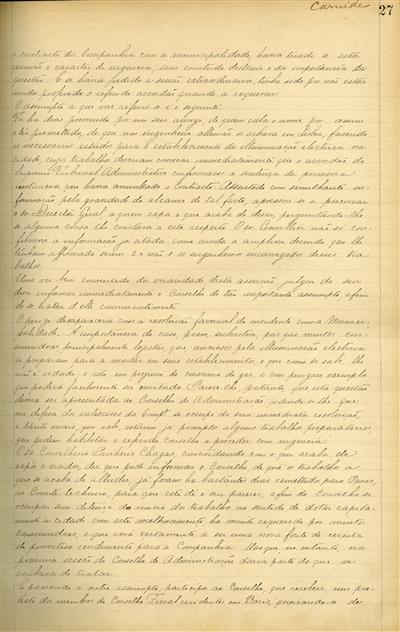 Carnide
27
o contracto da Companhia com a municipalidade, havia tirado a esta
reunião o caracter de urgencia, sem comtudo destruir o da importancia da
questão. E se havia pedido a sessão extraordinaria, tinha sido por não estar
ainda proferido o referido accordão quando a requereu
O assumpto a que vae referir-se é o seguinte
Ha dias prevenido por um seu amigo, de quem cala o nome por assim
o ter promettido, de que um engenheiro allemão se achava em Lisboa, fazendo
os necessarios estudos para o estabelecimento da illuminação electrica na
cidade, cujos trabalhos deviam começar immediatamente que o accordão do
Supremo Tribunal Administrativo confirmasse a sentença de primeira
instancia que havia annullado o Contracto. Assustado com similhante in-
formação, pela grandesa do alcance de tal facto, apressou-se a procurar
o sr Director Geral, a quem expoz o que acaba de dizer, perguntando-lhe
se alguma cousa lhe constava a este respeito. O sr. Conselheiro não só con-
firmou a informação já citada, como ainda a ampliou dizendo que lhe
tinham affirmado serem 2 e não 1 os engenheiros encarregados desses tra-
balhos.
Uma vez bem convencido da veracidade desta asserção, julgou do seu
dever informar immediatamente o Conselho de tão importante assumpto afim
de se tratar d'elle convenientemente
O perigo desappareceu com a resolução favoravel do incidente com a Munici-
palidade. A importancia do caso porem, subsistia, por que muitos con-
sumidores principalmente logistas que anciosos pela illuminação electrica
a preparam para a montar em seus estabelecimentos, o que como se sabe, lhe
não é vedado; e isto em prejuizo do consumo do gaz, e com perigoso exemplo
que poderá facilmente ser imitado. Parece-lhe portanto, que esta questão
devia ser apresentada ao Conselho de Administração pedindo-se-lhe que
na defeza dos interesses da Compª se occupe da sua immediata resolução,
e tanto mais, que sabe, estarem já promptos alguns trabalhos preparatorios,
que podem habilitar o referido Conselho a proceder com urgencia.
O sr Conselheiro Pinheiro Chagas, concordando com o que acaba de
expôr o orador, diz que pode informar o Conselho de que os trabalhos a
que se acaba de alludir, já foram ha bastantes dias remettidos para Paris,
ao Comité technico, para que este dê o seu parecer, afim do Conselho se
occupar sem delonga do meio do trabalho no sentido de dotar rapida-
mente a cidade com este melhoramento, ha muito requerido por muitos
consumidores, e que virá certamente a ser uma nova fonte de receita
de proveitoso rendimento para a Companhia. Mas que no entanto, na
proxima sessão do Conselho de Administração daria parte do que se
acabava de tratar.
E passando a outro assumpto, participa ao Conselho, que recebeu um pro-
testo dos membros do Conselho Fiscal residentes em Paris, queixando-se de